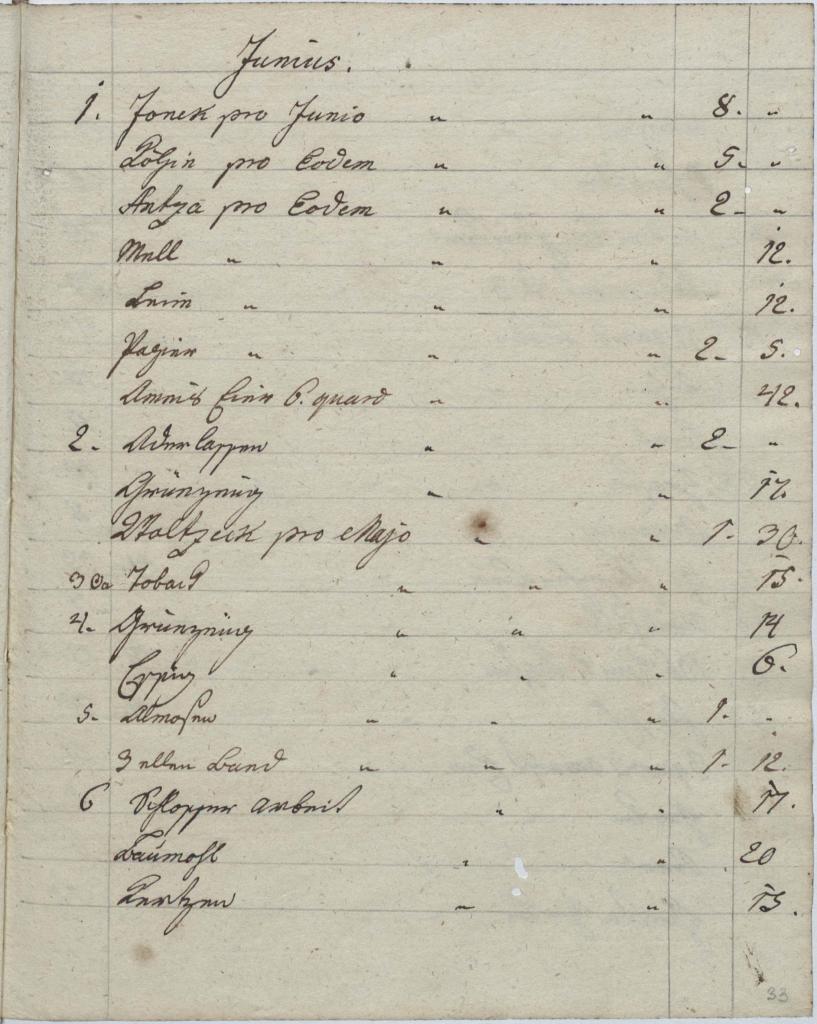 Junius.
1. Jonek pro Junio " " 8. "
Köhin pro Eodem " " 5. "
Antza pro Eodem " " 2 - "
Mell " " " 12.
Leim " " " 12.
Papier " " " 2 - 5.
Ameis Eier 6. quard " " 42.
2. Aderlassen " " 2 - "
Grünzeüg " " 17.
Woltzeck pro Majo " " 1. 30.
3 Toback " " " 15.
4. Grünzeüg " " " 14
Essig " " " 6.
5. Almosen " " " 1. "
3 ellen Band " " " 1. 12.
6 Schlosser arbeit " " 17.
Baumöhl " " 20
Kertzen " " 15.
33